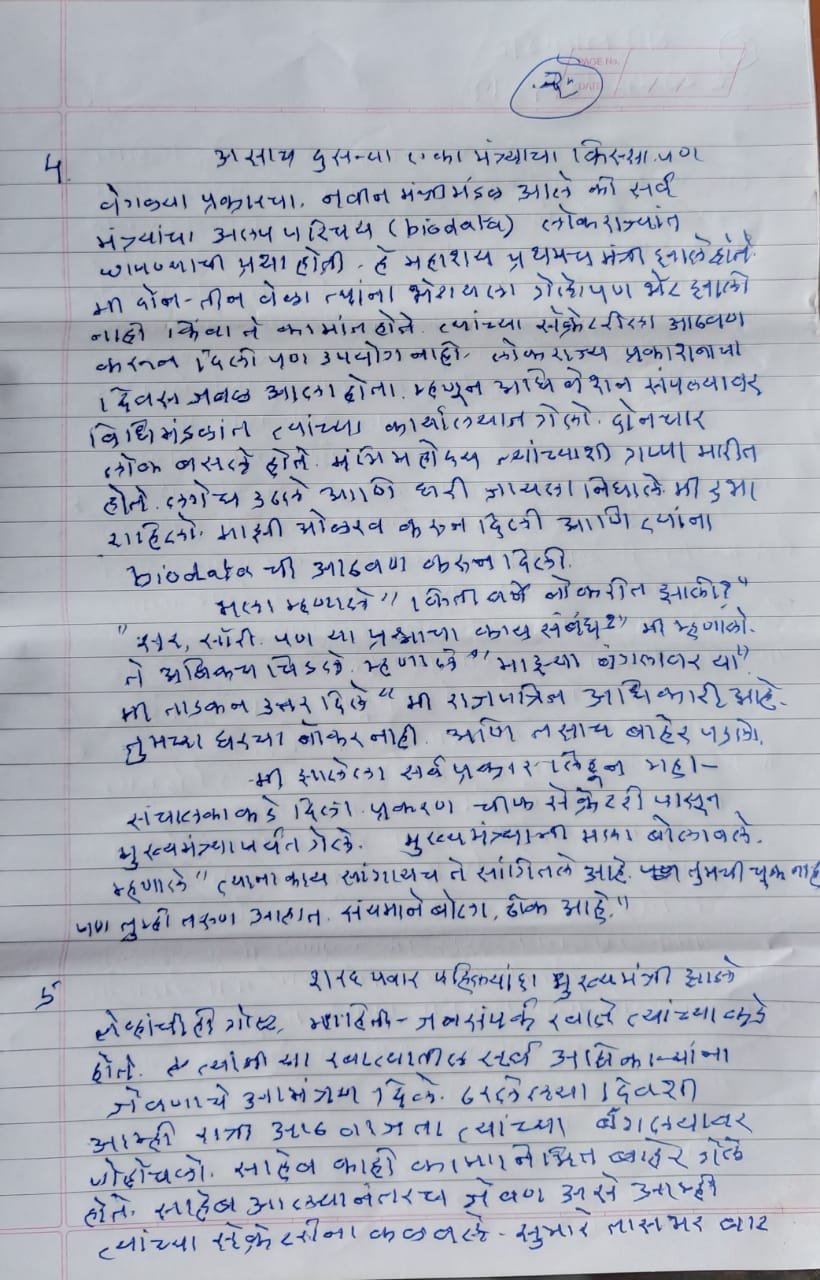 PAGE No.
DATE
4 असाच दुसऱ्या एका मंत्र्याचा किस्सा. पण
वेगळ्या प्रकारचा. नवीन मंत्रीमंडळ आले की सर्व
मंत्र्यांचा अल्प परिचय (biodata) लोकराज्यांत
छापण्याची प्रथा होती. हे महाशय प्रथमच मंत्री झाले होते.
मी दोन-तीन वेळा त्यांना भेटायला गेलो पण भेट झाली
नाही किंवा ते कामांत होते. त्यांच्या सेक्रेटरीला आठवण
करून दिली पण उपयोग नाही. लोकराज्य प्रकाशनाचा
दिवस जवळ आला होता. म्हणून अधिवेशन संपल्यावर
विधिमंडळांत त्यांच्या कार्यालयात गेलो. दोनचार
लोक बसले होते. मंत्रिमहोदय त्यांच्याशी गप्पा मारीत
होते. लगेच उठले आणि घरी जायला निघाले. मी उभा
राहिलो. माझी ओळख करून दिली आणि त्यांना
biodata ची आठवण करून दिली.
मला म्हणाले "किती वर्षे नोकरीत झाली?"
"सर, सॉरी. पण या प्रश्नाचा काय संबंध?" मी म्हणालो.
ते अधिकच चिडले. म्हणाले "माझ्या बंगलावर या"
मी ताडकन उत्तर दिले "मी राजपत्रित अधिकारी आहे.
तुमच्या घरचा नोकर नाही. आणि तसाच बाहेर पडलो.
मी झालेला सर्व प्रकार लिहून महा-
संचालकाकडे दिला. प्रकरण चीफ सेक्रेटरी पासून
मुख्यमंत्र्यापर्यंत गेले. मुख्यमंत्र्यानी मला बोलावले.
म्हणाले "त्याना काय सांगायच ते सांगितले आहे. तुमची चूक नाही
पण तुम्ही तरुण आहात. संयमाने बोला, ठीक आहे."
5 शरद पवार पहिल्यांदा मुख्यमंत्री झाले
तेव्हांची ही गोष्ट, माहिती-जनसंपर्क खाते त्यांच्याकडे
होते. त्यांनी या खात्यातील सर्व अधिकाऱ्यांना
जेवणाचे आमंत्रण दिले. ठरलेल्या दिवशी
आम्ही रात्री आठ वाजता त्यांच्या बंगल्यावर
पोहोचलो. साहेब काही कामानिमित्त बाहेर गेले
होते. साहेब आल्यानंतरच जेवण असे आम्ही
त्यांच्या सेक्रेटरीना कळवले. सुमारे तासभर वाट